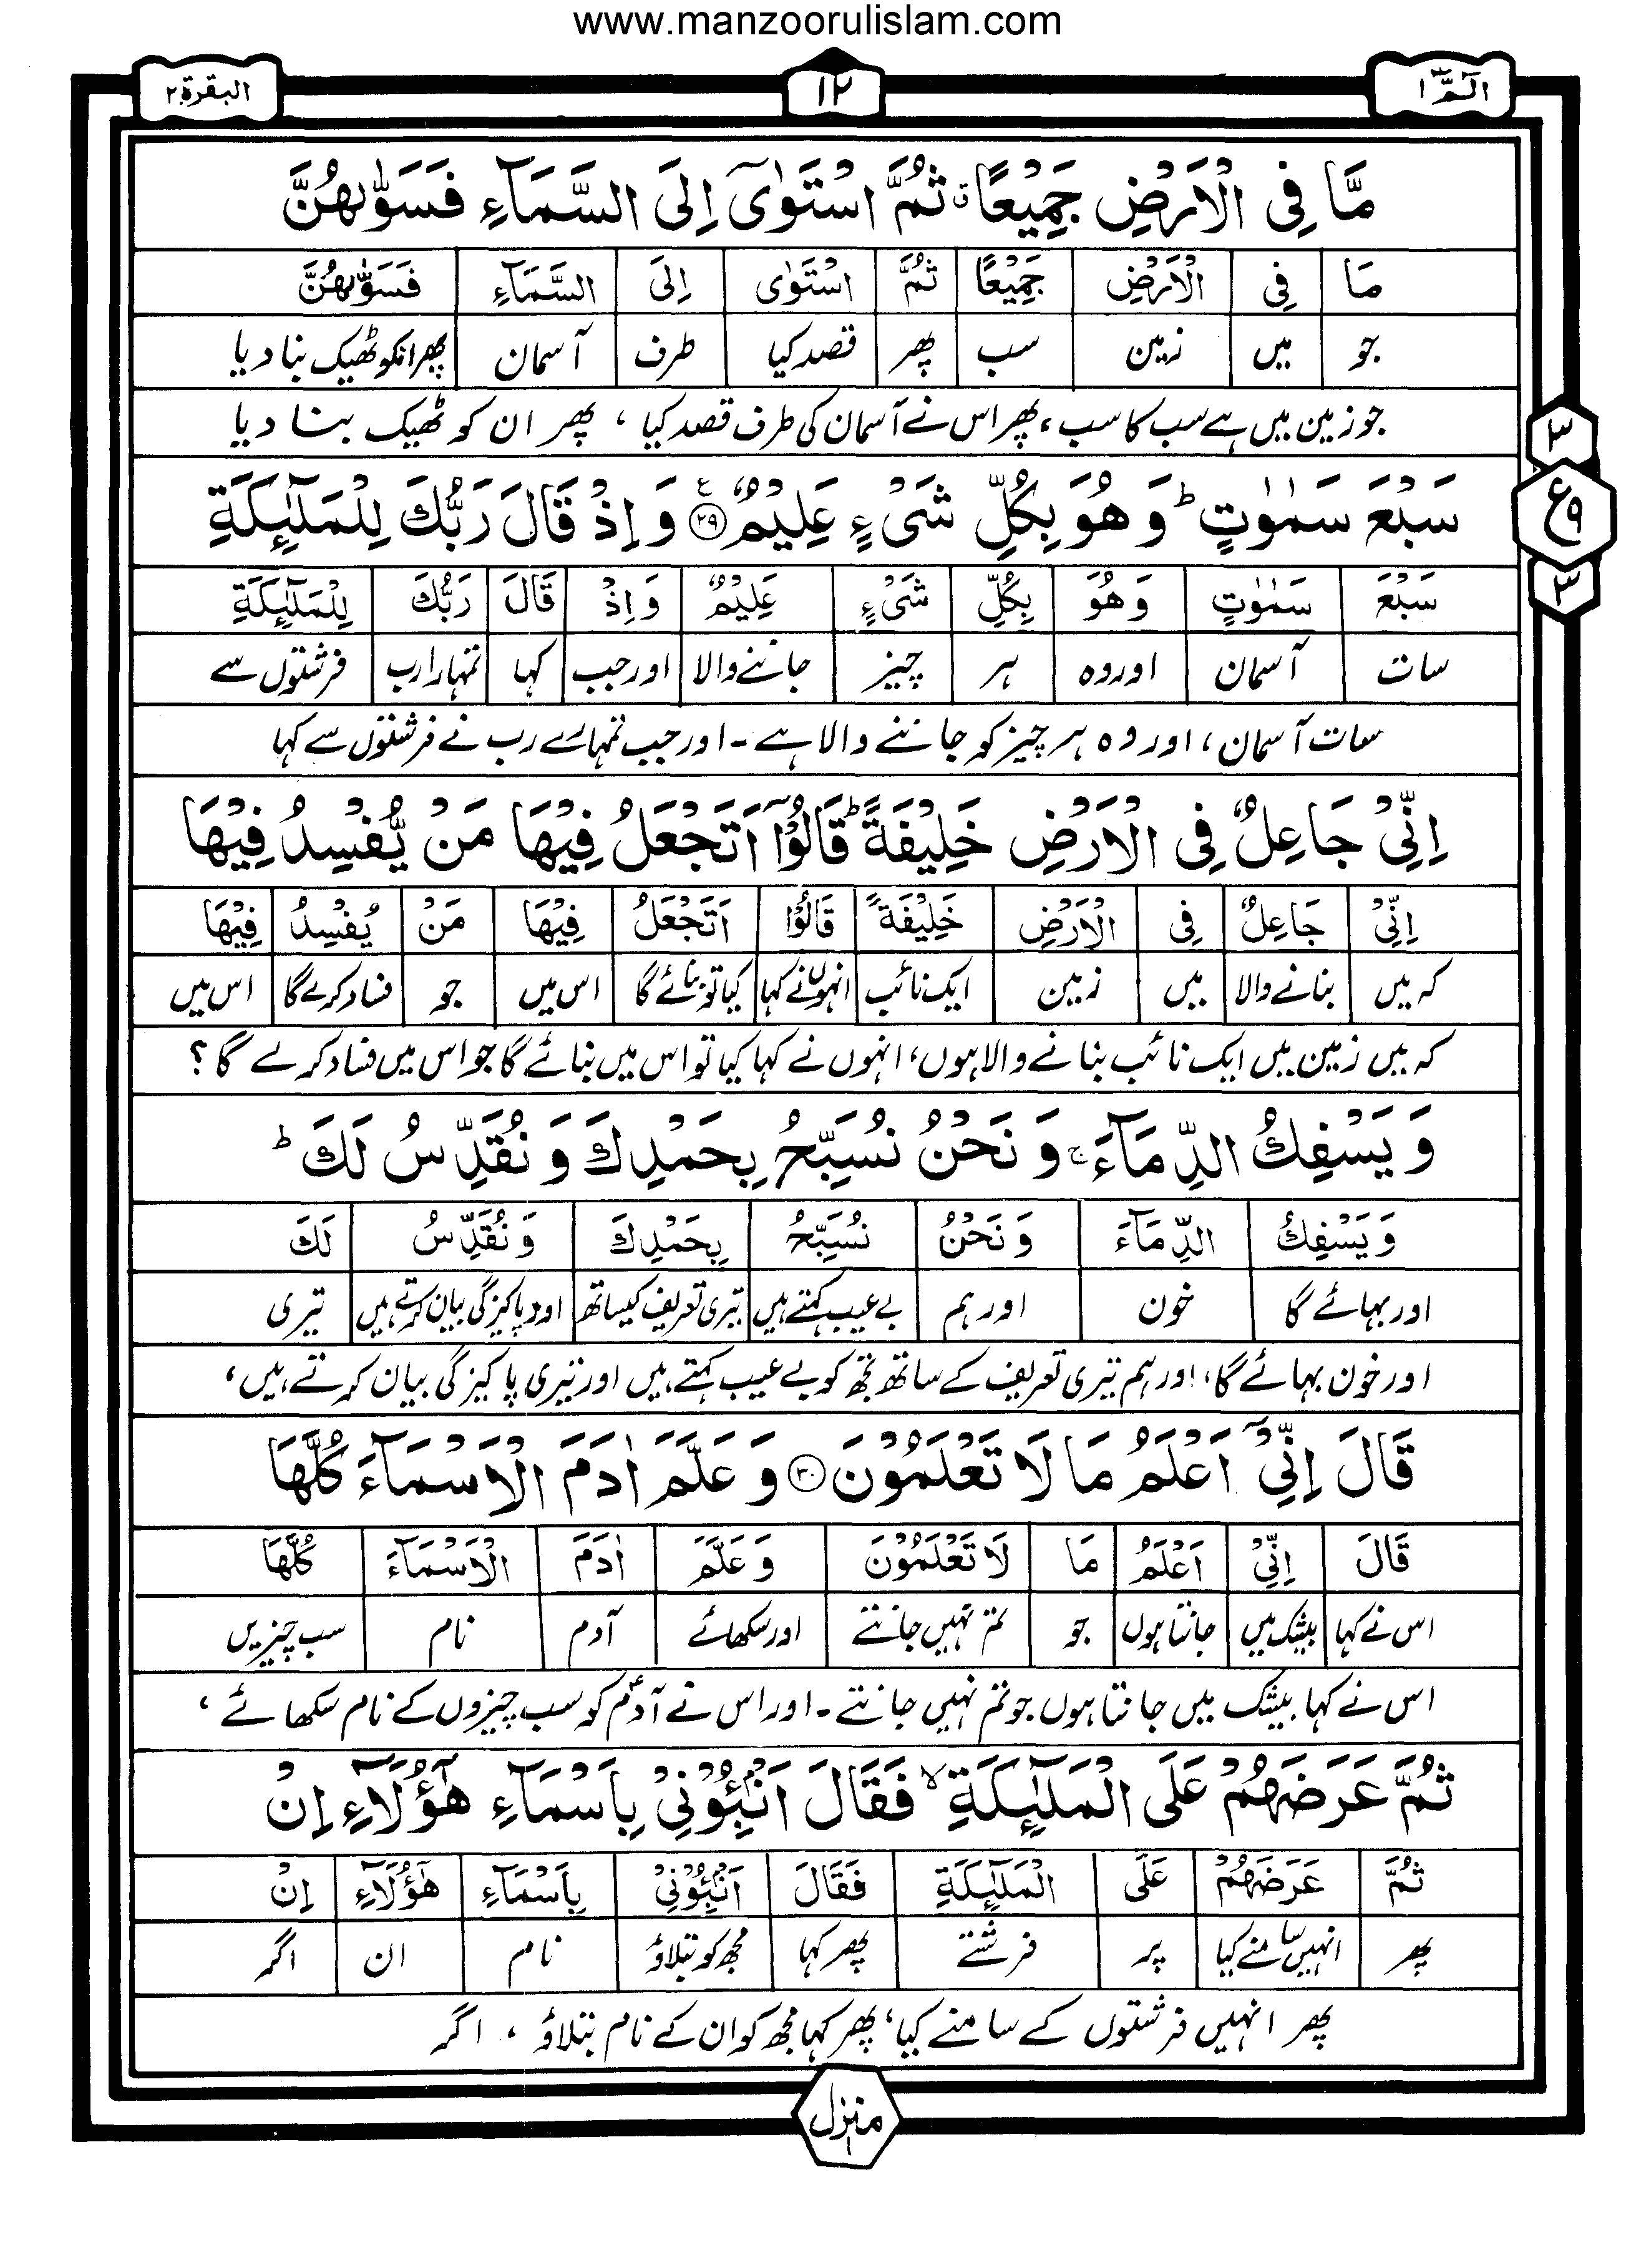 www.manzoorulislam.com
الٓمّٓ ۱ ۱۲ البقرة ۲
مَّا فِى الْاَرْضِ جَمِيْعًا ۗ ثُمَّ اسْتَوٰٓى اِلَى السَّمَآءِ فَسَوّٰىهُنَّ
مَا فِى الْاَرْضِ جَمِيْعًا ثُمَّ اسْتَوٰى اِلَى السَّمَآءِ فَسَوّٰىهُنَّ
جو میں زمین سب پھر قصد کیا طرف آسمان پھر انکو ٹھیک بنا دیا
جو زمین میں ہے سب کا سب، پھر اس نے آسمان کی طرف قصد کیا، پھر ان کو ٹھیک بنا دیا
۳
ع ۹
۳
سَبْعَ سَمٰوٰتٍ ؕ وَ هُوَ بِكُلِّ شَىْءٍ عَلِيْمٌ ۲۹ وَ اِذْ قَالَ رَبُّكَ لِلْمَلٰٓئِكَةِ
سَبْعَ سَمٰوٰتٍ وَهُوَ بِكُلِّ شَىْءٍ عَلِيْمٌ وَ اِذْ قَالَ رَبُّكَ لِلْمَلٰٓئِكَةِ
سات آسمان اور وہ ہر چیز جاننے والا اور جب کہا تمہارا رب فرشتوں سے
سات آسمان، اور وہ ہر چیز کو جاننے والا ہے۔ اور جب تمہارے رب نے فرشتوں سے کہا
اِنِّىْ جَاعِلٌ فِى الْاَرْضِ خَلِيْفَةً ؕ قَالُوْٓا اَتَجْعَلُ فِيْهَا مَنْ يُّفْسِدُ فِيْهَا
اِنِّىْ جَاعِلٌ فِى الْاَرْضِ خَلِيْفَةً قَالُوْا اَتَجْعَلُ فِيْهَا مَنْ يُفْسِدُ فِيْهَا
کہ میں بنانے والا میں زمین ایک نائب انہوں نے کہا کیا تو بنائے گا اس میں جو فساد کرے گا اس میں
کہ میں زمین میں ایک نائب بنانے والا ہوں، انہوں نے کہا کیا تو اس میں بنائے گا جو اس میں فساد کرے گا؟
وَ يَسْفِكُ الدِّمَآءَ ۚ وَ نَحْنُ نُسَبِّحُ بِحَمْدِكَ وَ نُقَدِّسُ لَكَ ؕ
وَ يَسْفِكُ الدِّمَآءَ وَ نَحْنُ نُسَبِّحُ بِحَمْدِكَ وَ نُقَدِّسُ لَكَ
اور بہائے گا خون اور ہم بے عیب کہتے ہیں تیری تعریف کیساتھ اور پاکیزگی بیان کرتے ہیں تیری
اور خون بہائے گا، اور ہم تیری تعریف کے ساتھ تجھ کو بے عیب کہتے ہیں اور تیری پاکیزگی بیان کرتے ہیں،
قَالَ اِنِّىْٓ اَعْلَمُ مَا لَا تَعْلَمُوْنَ ۳۰ وَ عَلَّمَ اٰدَمَ الْاَسْمَآءَ كُلَّهَا
قَالَ اِنِّىْ اَعْلَمُ مَا لَا تَعْلَمُوْنَ وَ عَلَّمَ اٰدَمَ الْاَسْمَآءَ كُلَّهَا
اس نے کہا بیشک میں جانتا ہوں جو تم نہیں جانتے اور سکھائے آدم نام سب چیزیں
اس نے کہا بیشک میں جانتا ہوں جو تم نہیں جانتے۔ اور اس نے آدمؑ کو سب چیزوں کے نام سکھائے،
ثُمَّ عَرَضَهُمْ عَلَى الْمَلٰٓئِكَةِ ۙ فَقَالَ اَنْۢبِـُٔوْنِىْ بِاَسْمَآءِ هٰٓؤُلَآءِ اِنْ
ثُمَّ عَرَضَهُمْ عَلَى الْمَلٰٓئِكَةِ فَقَالَ اَنْۢبِـُٔوْنِىْ بِاَسْمَآءِ هٰٓؤُلَآءِ اِنْ
پھر انہیں سامنے کیا پر فرشتے پھر کہا مجھ کو بتلاؤ نام ان اگر
پھر انہیں فرشتوں کے سامنے کیا، پھر کہا مجھ کو ان کے نام بتلاؤ، اگر
منزل ۱